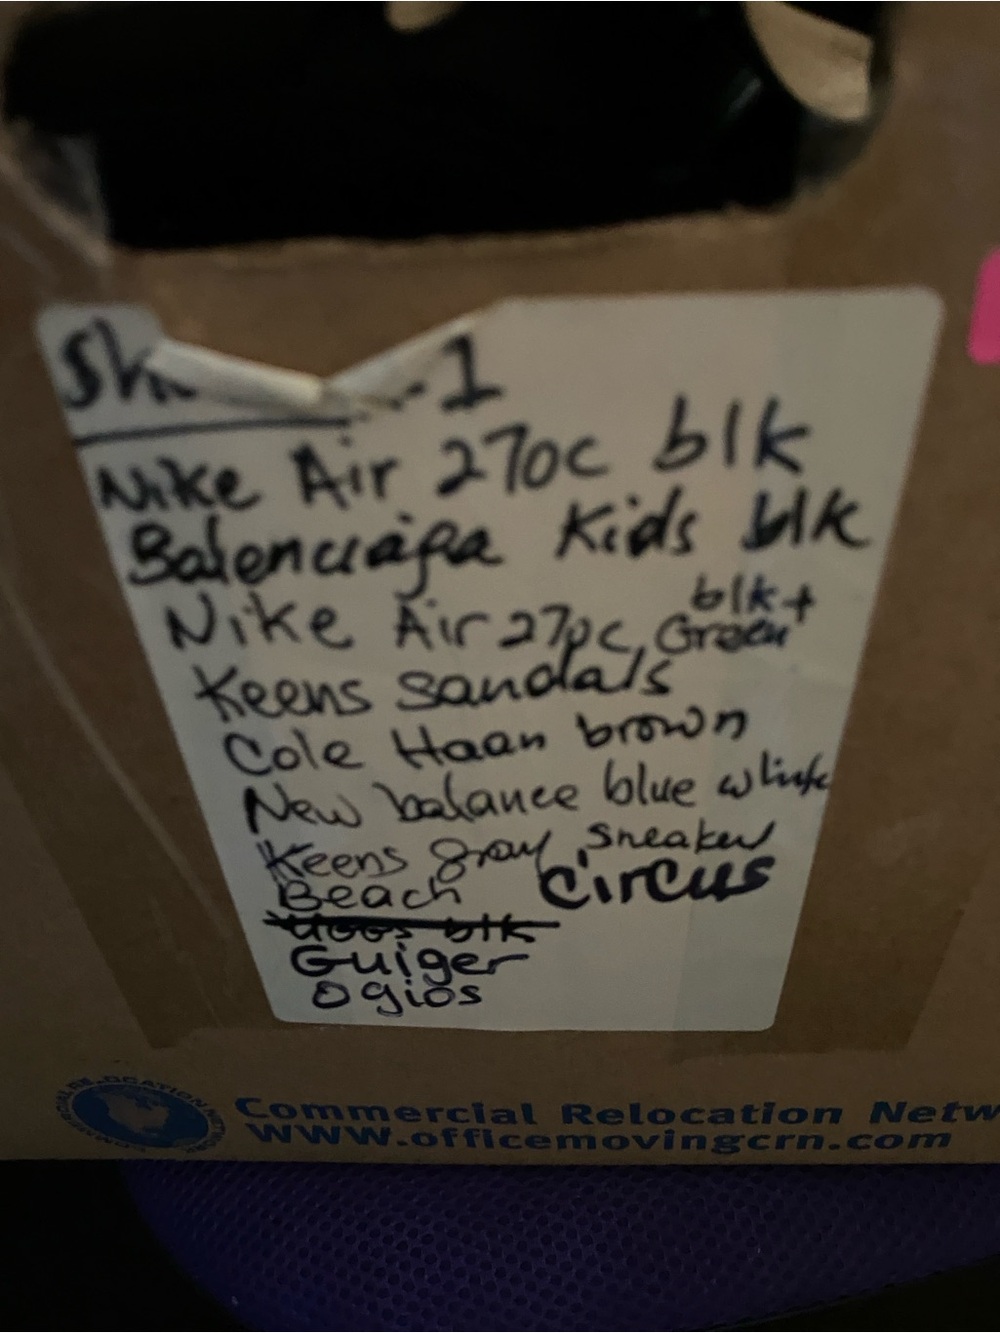 -1
Nike Air 270c blk
Balenciaga Kids blk
Nike Air 270c blk+ Green
Keens sandals
Cole Haan brown
New balance blue white
Keens gray sneaker
Beach Circus
Uggs blk
Guiger
Ogios
Commercial Relocation Netw
www.officemovingcrn.com